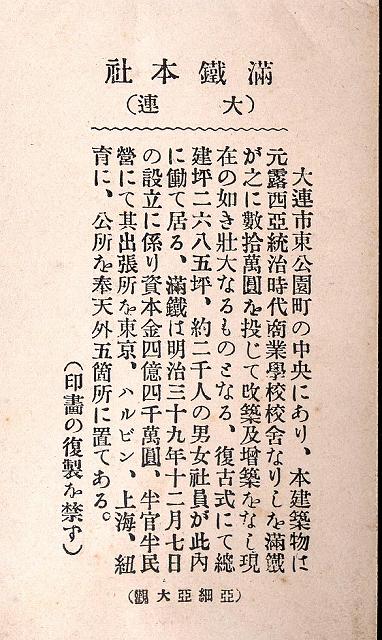 滿鐵本社
(大連)
大連市東公園町の中央にあり、本建築物は
元露西亞統治時代商業學校校舍なりしを滿鐵
が之に數拾萬圓を投じて改築及增築をなし現
在の如き壯大なるものとなる、復古式にて總
建坪二六八五坪、約二千人の男女社員が此內
に働て居る、滿鐵は明治三十九年十二月七日
の設立に係り資本金四億四千萬圓、半官半民
營にて其出張所を東京、ハルビン、上海、紐
育に、公所を奉天外五箇所に置てある。
(印畫の復製を禁ず)
(亞細亞大觀)